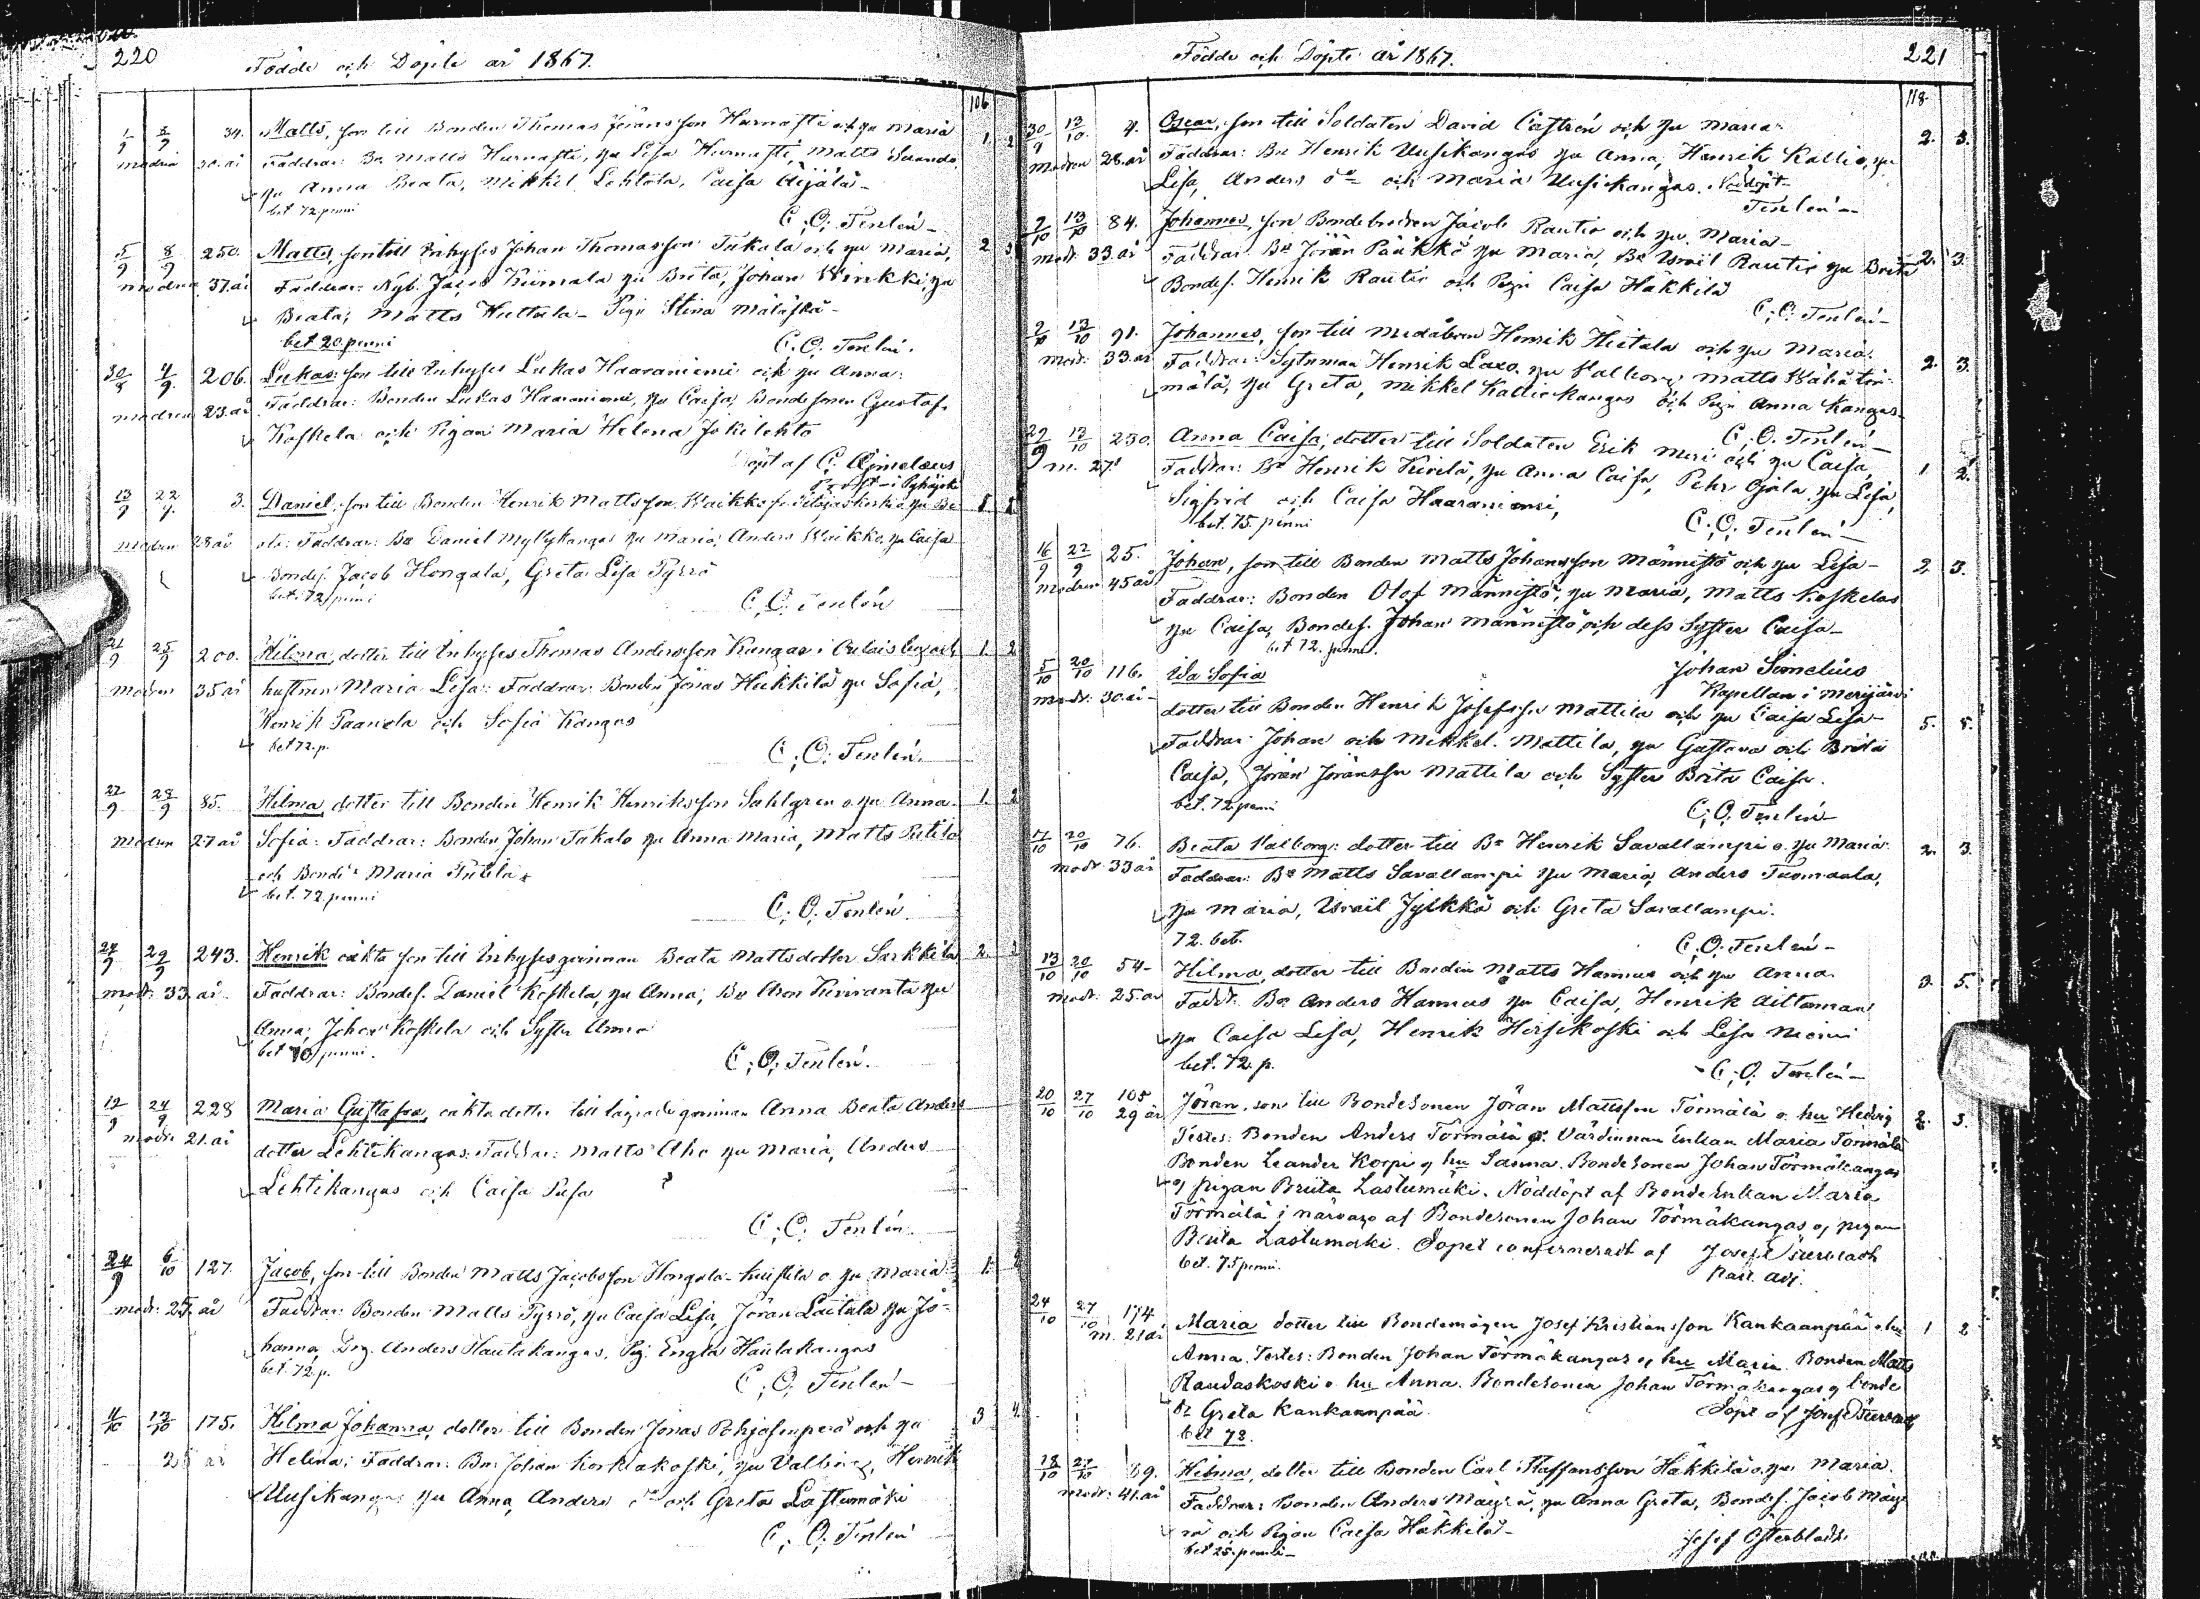 220
Födde och Döpte år 1867.
106
1/9 8/9 34. Matts, son till Bonden Thomas Jöransson och hu Maria 1. 2
modren 30. år Faddrar: Bn Matts hu Lisa Matts
hu Anna Beata, Mikkel Lehtola, Caisa Äijälä
bet 72 penni
C. O. Tenlén
5/9 8/9 250. Matts, son till Inhyses Johan Thomasson och hu Maria, 2 3
modren 37. år Faddrar: Nyb. Jacob hu Brita, Johan hu
Beata, Matts Pigu Stina
bet 20 penni
C. O. Tenlén.
30/8 4/9 206. Lukas son till Inhyses Lukas Haaraniemi och hu Anna.
modren 23 år Faddrar: Bonden Lukas Haaraniemi, hu Caisa, Bondesonen Gustaf
Koskela och Pigan Maria Helena Jokilehto
Döpt af C. Ajmelæus
13/9 22/9 3. Daniel, son till Bonden Henrik Mattsson hu
modren 28 år Faddrar: Bn Daniel Myllykangas hu Maria, Anders hu Caisa
Bondes. Jacob Hongala, Greta Lisa Pyrrö
bet. 72 penni
C. O. Tenlén
21/9 25/9 200. Hilma, dotter till Inhyses Thomas Andersson Kangas i och 1. 2
modren 35 år hustrun Maria Lisa: Faddrar: Bonden Jonas hu Sofia,
Henrik Paavola och Sofia Kangas
bet 72. p.
C. O. Tenlén.
22/9 29/9 85. Hilma, dotter till Bonden Henrik Henriksson Sahlgren o. hu Anna 1. 2
modren 27 år Sofia: Faddrar: Bonden Johan Takalo hu Anna Maria, Matts
och Maria
bet. 72. penni
C. O. Tenlén.
24/9 29/9 243. Henrik oäkta son till Inhysesqvinnan Beata Mattsdotter Sarkkila 2. 3
modr: 33 år Faddrar: Bondes. Daniel Koskela hu Anna, Bn Aron Kiviranta hu
Anna, Johan Koskela och Syster Anna
bet penni.
C. O. Tenlén.
12/9 24/9 228 Maria Gustafva, oäkta dotter till lägrade qvinnan Anna Beata Anders
modr: 21. år dotter Lehtikangas: Faddrar: Matts Aho hu Maria, Anders
Lehtikangas och Caisa
C. O. Tenlén.
24/9 6/10 127. Jacob, son till Bonden Matts Jacobsson Hongala o. hu Maria 1. 2
modr: 25. år Faddrar: Bonden Matts Pyrrö, hu Caisa Lisa, Jöran Laitala hu Jo-
hanna, Drg. Anders Hautakangas, Pig. Engla Hautakangas
bet. 72. p.
C. O. Tenlén
4/10 13/10 175. Hilma Johanna, dotter till Bonden Jonas Pohjasenperä och hu 3 4.
år Helena: Faddrar: Bn Johan Korkiakoski, hu Valborg, Henrik
Uusikangas hu Anna, Anders och Greta Lastumäki
C. O. Tenlén
Födde och Döpte år 1867.
221
118.
30/9 13/10. 4. Oscar, son till Soldaten David Castrén och hu Maria 2. 3.
modren 28. år Faddrar: Bn Henrik Uusikangas hu Anna, Henrik Kallio, hu
Lisa, Anders och Maria Uusikangas. Nöddöpt
Tenlén
2/10 13/10 84. Johannes, son Bondebodren Jacob Rautio och hu Maria 2. 3.
modr. 33. år Faddrar. Bn Jöran Pääkkö hu Maria, Bn Israil Rautio hu Brita
Bondes. Henrik Rautio och Pigu Caisa Häkkilä
C. O. Tenlén
2/10 13/10 91. Johannes, son till medåboen Henrik Hietala och hu Maria. 2. 3.
modr. 33. år Faddrar: Sytnman Henrik Laxo, hu Valborg, Matts
mälä, hu Greta, Mikkel Kalliokangas och Pigu Anna Kangas
C. O. Tenlén
29/9 13/10 230. Anna Caisa, dotter till Soldaten Erik Meri och hu Caisa 1. 2.
m. 27. Faddrar: Bn Henrik hu Anna Caisa, Pehr Ojala hu Lisa,
Sigfrid och Caisa Haaraniemi,
bet. 75. penni
C. O. Tenlén
16/9 22/9 25. Johan, son till Bonden Matts Johansson Männistö och hu Lisa 2. 3.
modren 45 år Faddrar: Bonden Olof Männistö, hu Maria, Matts Koskelas
hu Caisa, Bondes. Johan Männistö, och dess Syster Caisa
bet 72. penni.
Johan Simelius
Kapellan i Merijärvi
5/10 20/10 116. Ida Sofia
modr: 30. år dotter till Bonden Henrik Josefsson Mattila och hu Caisa Lisa 5. 5.
Faddrar Johan och Mikkel Mattila, hu Gustava och Brita
Caisa, Jöran Jöransson Mattila och Syster Brita Caisa.
bet. 72 penni
C. O. Tenlén
17/10 20/10 76. Beata Valborg: dotter till Bn Henrik Savallampi o. hu Maria. 2. 3.
modr 33 år Faddrar: Bn Matts Savallampi hu Maria, Anders Tuomaala,
hu Maria, Israil Jylkkä och Greta Savallampi.
72. bet.
C. O. Tenlén
13/10 20/10 54 Hilma, dotter till Bonden Matts Hannus och hu Anna 3. 5.
modr: 25. år Faddr: Bn Anders Hannus hu Caisa, Henrik
hu Caisa Lisa, Henrik Hirsikoski och Lisa Niemi
bet. 72. p.
C. O. Tenlén
20/10 27/10 105 Jöran, son till Bondesonen Jöran Mattsson Törmälä o. hu Hedvig 2. 3.
29 år Testes: Bonden Anders Törmälä o. Värdinnan Enkan Maria Törmälä
Bonden Leander Korpi o hu Sanna. Bondesonen Johan Törmäkangas
o pigan Briita Lastumäki. Nöddöpt af Bonde Enkan Maria
Törmälä i närvaro af Bondesonen Johan Törmäkangas o pigan
Briita Lastumäki. Dopet confirmeradt af Josef Österbladh
bet. 75 penni. Past. adj.
24/10 27/10 174 Maria dotter till Bondemågen Josef Kristiansson Kankaanpää o hu 1 2
m. 21 år Anna. Testes: Bonden Johan Törmäkangas o hu Maria. Bonden Matts
Raudaskoski o hu Anna. Bondesonen Johan Törmäkangas o bonde
dr Greta Kankaanpää. Döpt af Josef Österbladh
bet 72.
18/10 27/10 89. Hilma, dotter till Bonden Carl Staffansson Häkkilä o. hu Maria.
modr: 41. år Faddrar: Bonden Anders hu Anna Greta, Bondes. Jacob
rä och Pigan Caisa Häkkilä
bet 25. penni
Josef Österbladh.